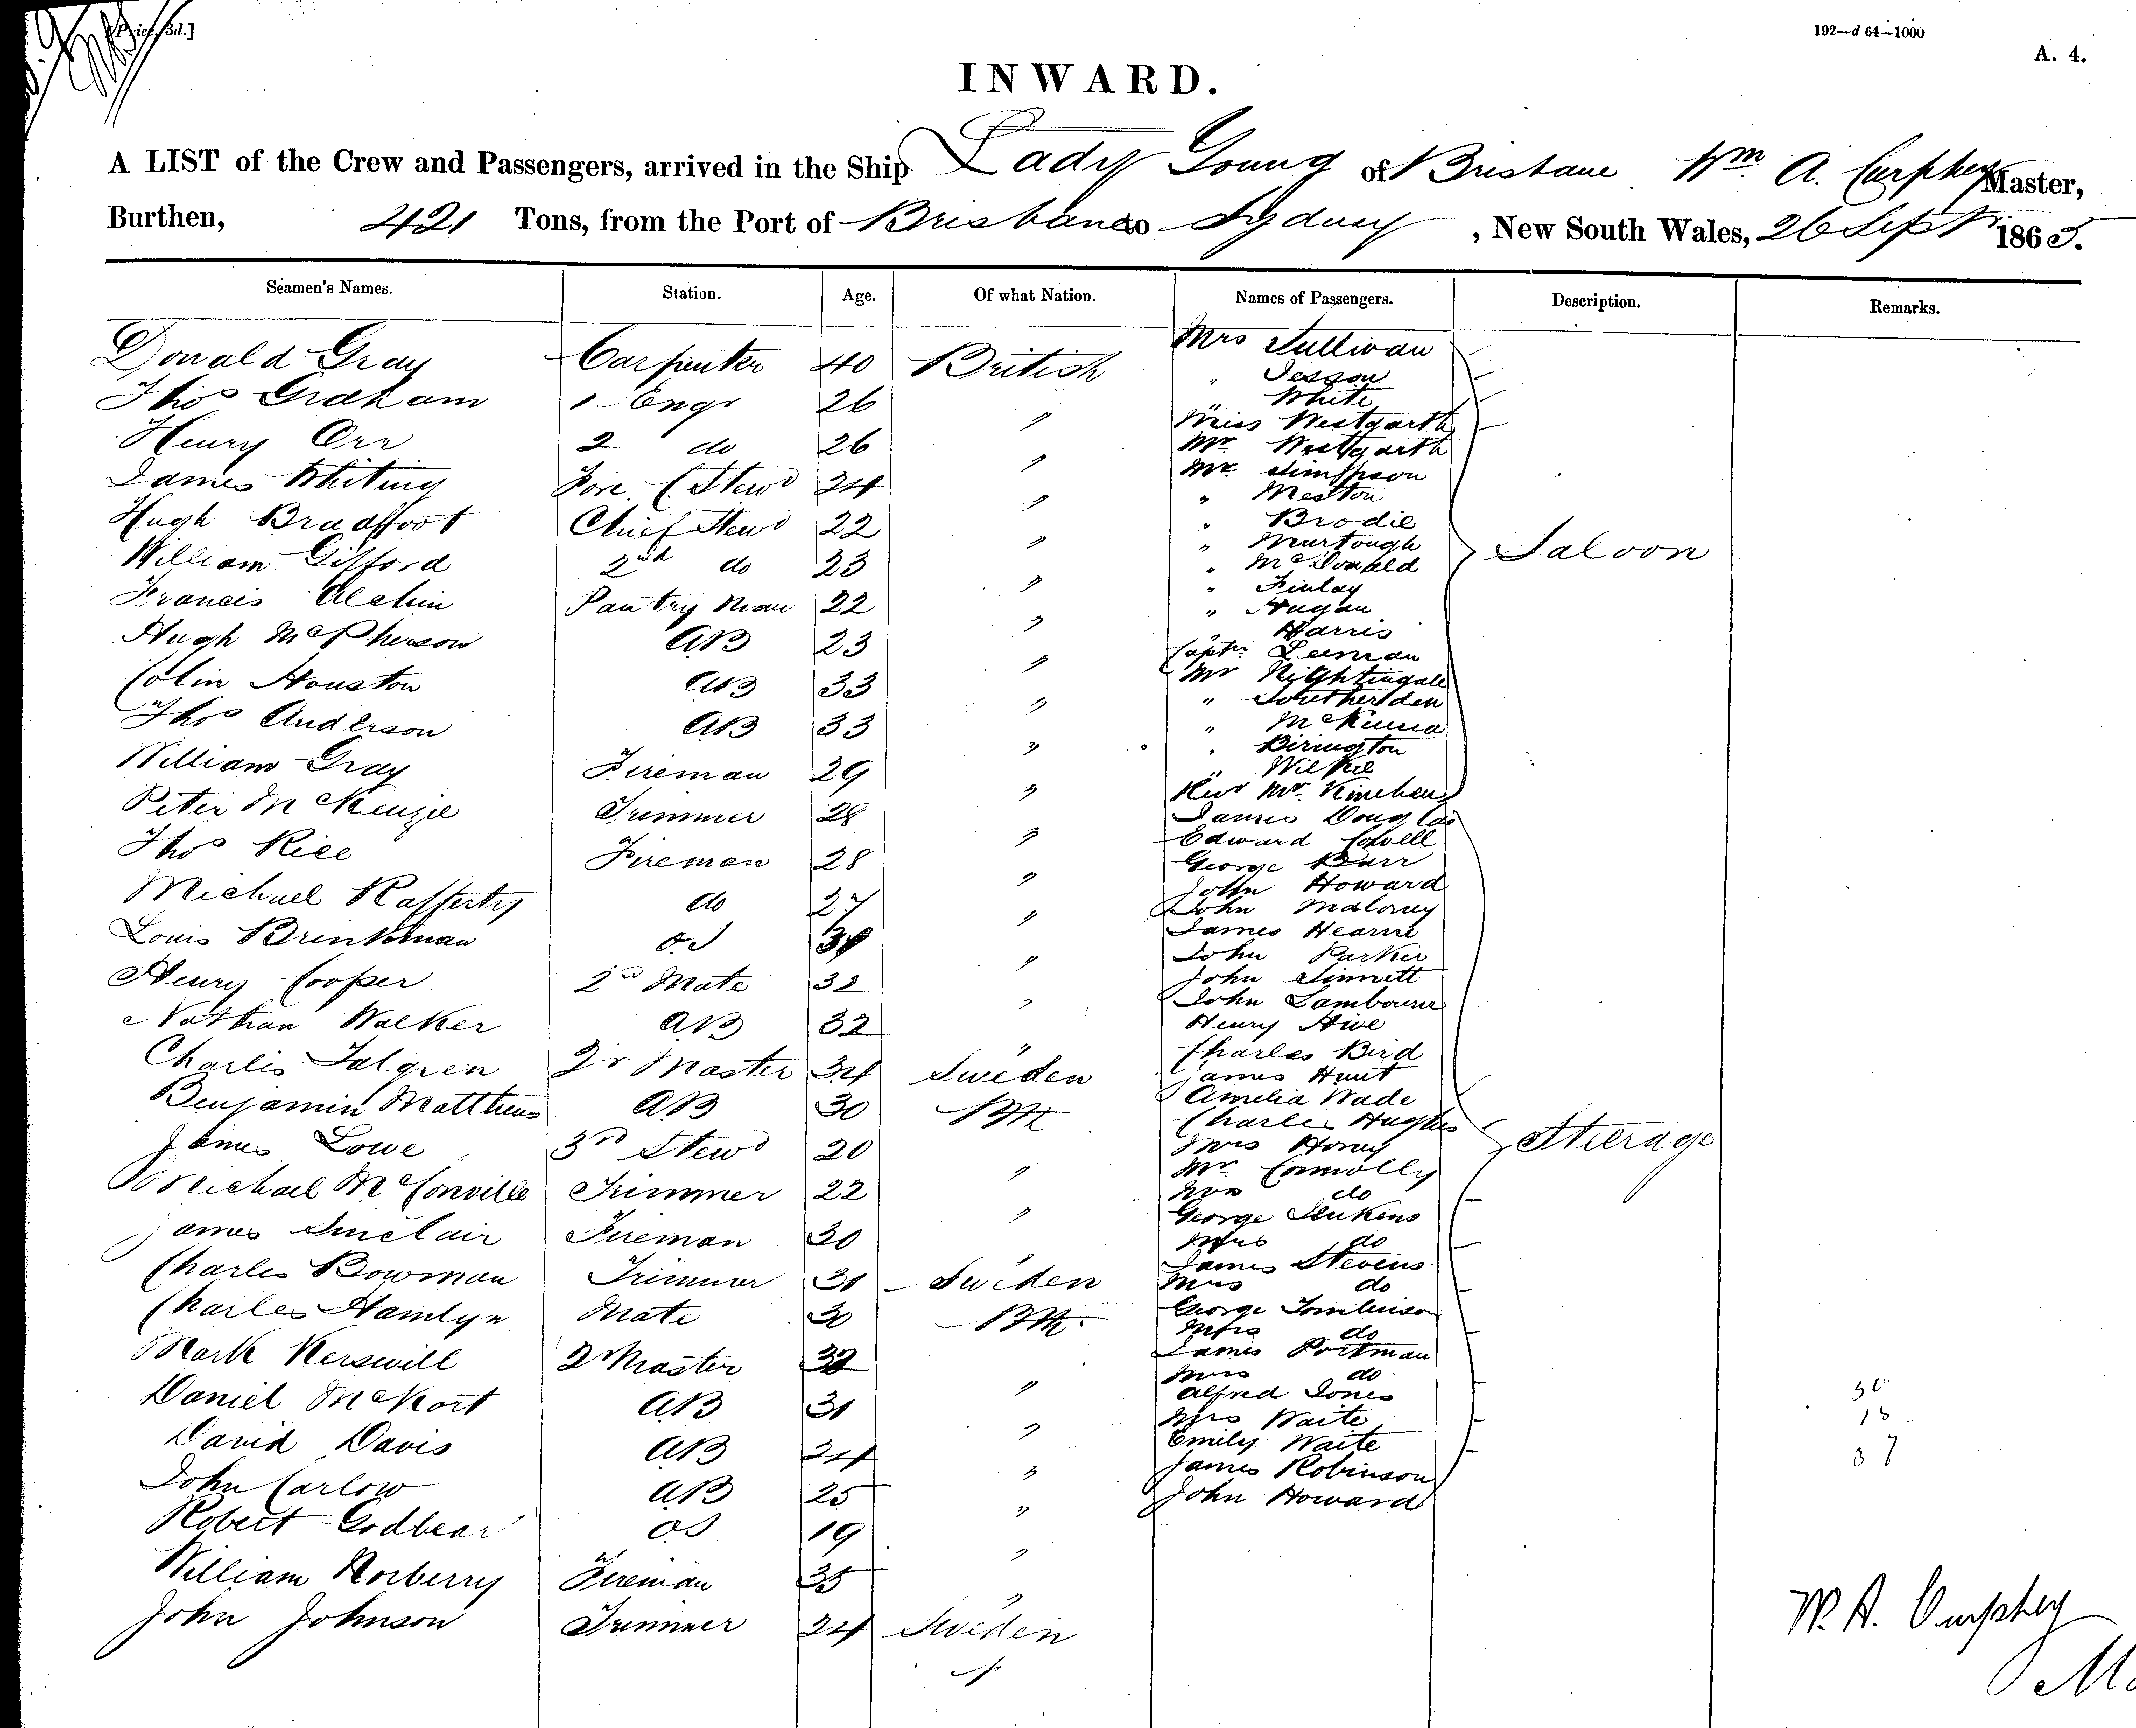 [Price, 3d.]
192—d 64—1000
A. 4.
INWARD.
A LIST of the Crew and Passengers, arrived in the Ship Lady Young of Brisbane Wm A. Curphey Master,
Burthen, 421 Tons, from the Port of Brisbane to Sydney, New South Wales, 26 Sept 1865.
Seamen's Names. Station. Age. Of what Nation. Names of Passengers. Description. Remarks.
Donald Gray Carpenter 40 British
Thos Graham 1 Engr 26 "
Henry Orr 2 do 26 "
James Whiting Fore C Stewd 24 "
Hugh Bradfoot Chief Stewd 22 "
William Gifford 2nd do 23 "
Francis Alchin Pantry Man 22 "
Hugh McPherson AB 23 "
Colin Houston AB 33 "
Thos Anderson AB 33 "
William Gray Fireman 29 "
Peter McKenzie Trimmer 28 "
Thos Rice Fireman 28 "
Michael Rafferty do 27 "
Louis Brinkman OS "
Henry Cooper 2nd Mate 32 "
Nathan Walker AB 32 "
Charles Talgren Qr Master 34 Sweden
Benjamin Matthews AB 30 BM
James Lowe 3rd Stewd 20 "
Michael McConville Trimmer 22 "
James Sinclair Fireman 30 "
Charles Bowman Trimmer 31 Sweden
Charles Hamlyn Mate 30 BM
Mark Kerswill Q Master "
Daniel McKort AB 31 "
David Davis AB 24 "
John Carlow AB 25 "
Robert Godbear OS 19 "
William Norberry Fireman 35 "
John Johnson Trimmer 24 Sweden
Mrs Sullivan
" Jesson
" White
Miss Westgarth
Mr Westgarth
Mr Simpson
" Meston
" Brodie
" Murtough
" McDonald
" Finlay
" Hugan
" Harris
Captn Leeman
Mr Nightingale
" Southerden
" McKinna
" Birington
" Wilkie
Revd Mr
Saloon
James Douglas
Edward Colvell
George Burr
John Howard
John Maloney
James Hearne
John Parker
John Sinnett
John Lambourne
Henry Hive
Charles Bird
James Hunt
Amelia Wade
Charles Hughes
Mrs Horny
Mr Connolly
Mrs do
George Jenkens
Mrs do
James Stevens
Mrs do
George Tomlinson
Mrs do
James Portman
Mrs do
Alfred Jones
Mrs Waite
Emily Waite
James Robinson
John Howard
Steerage
W. A. Curphey